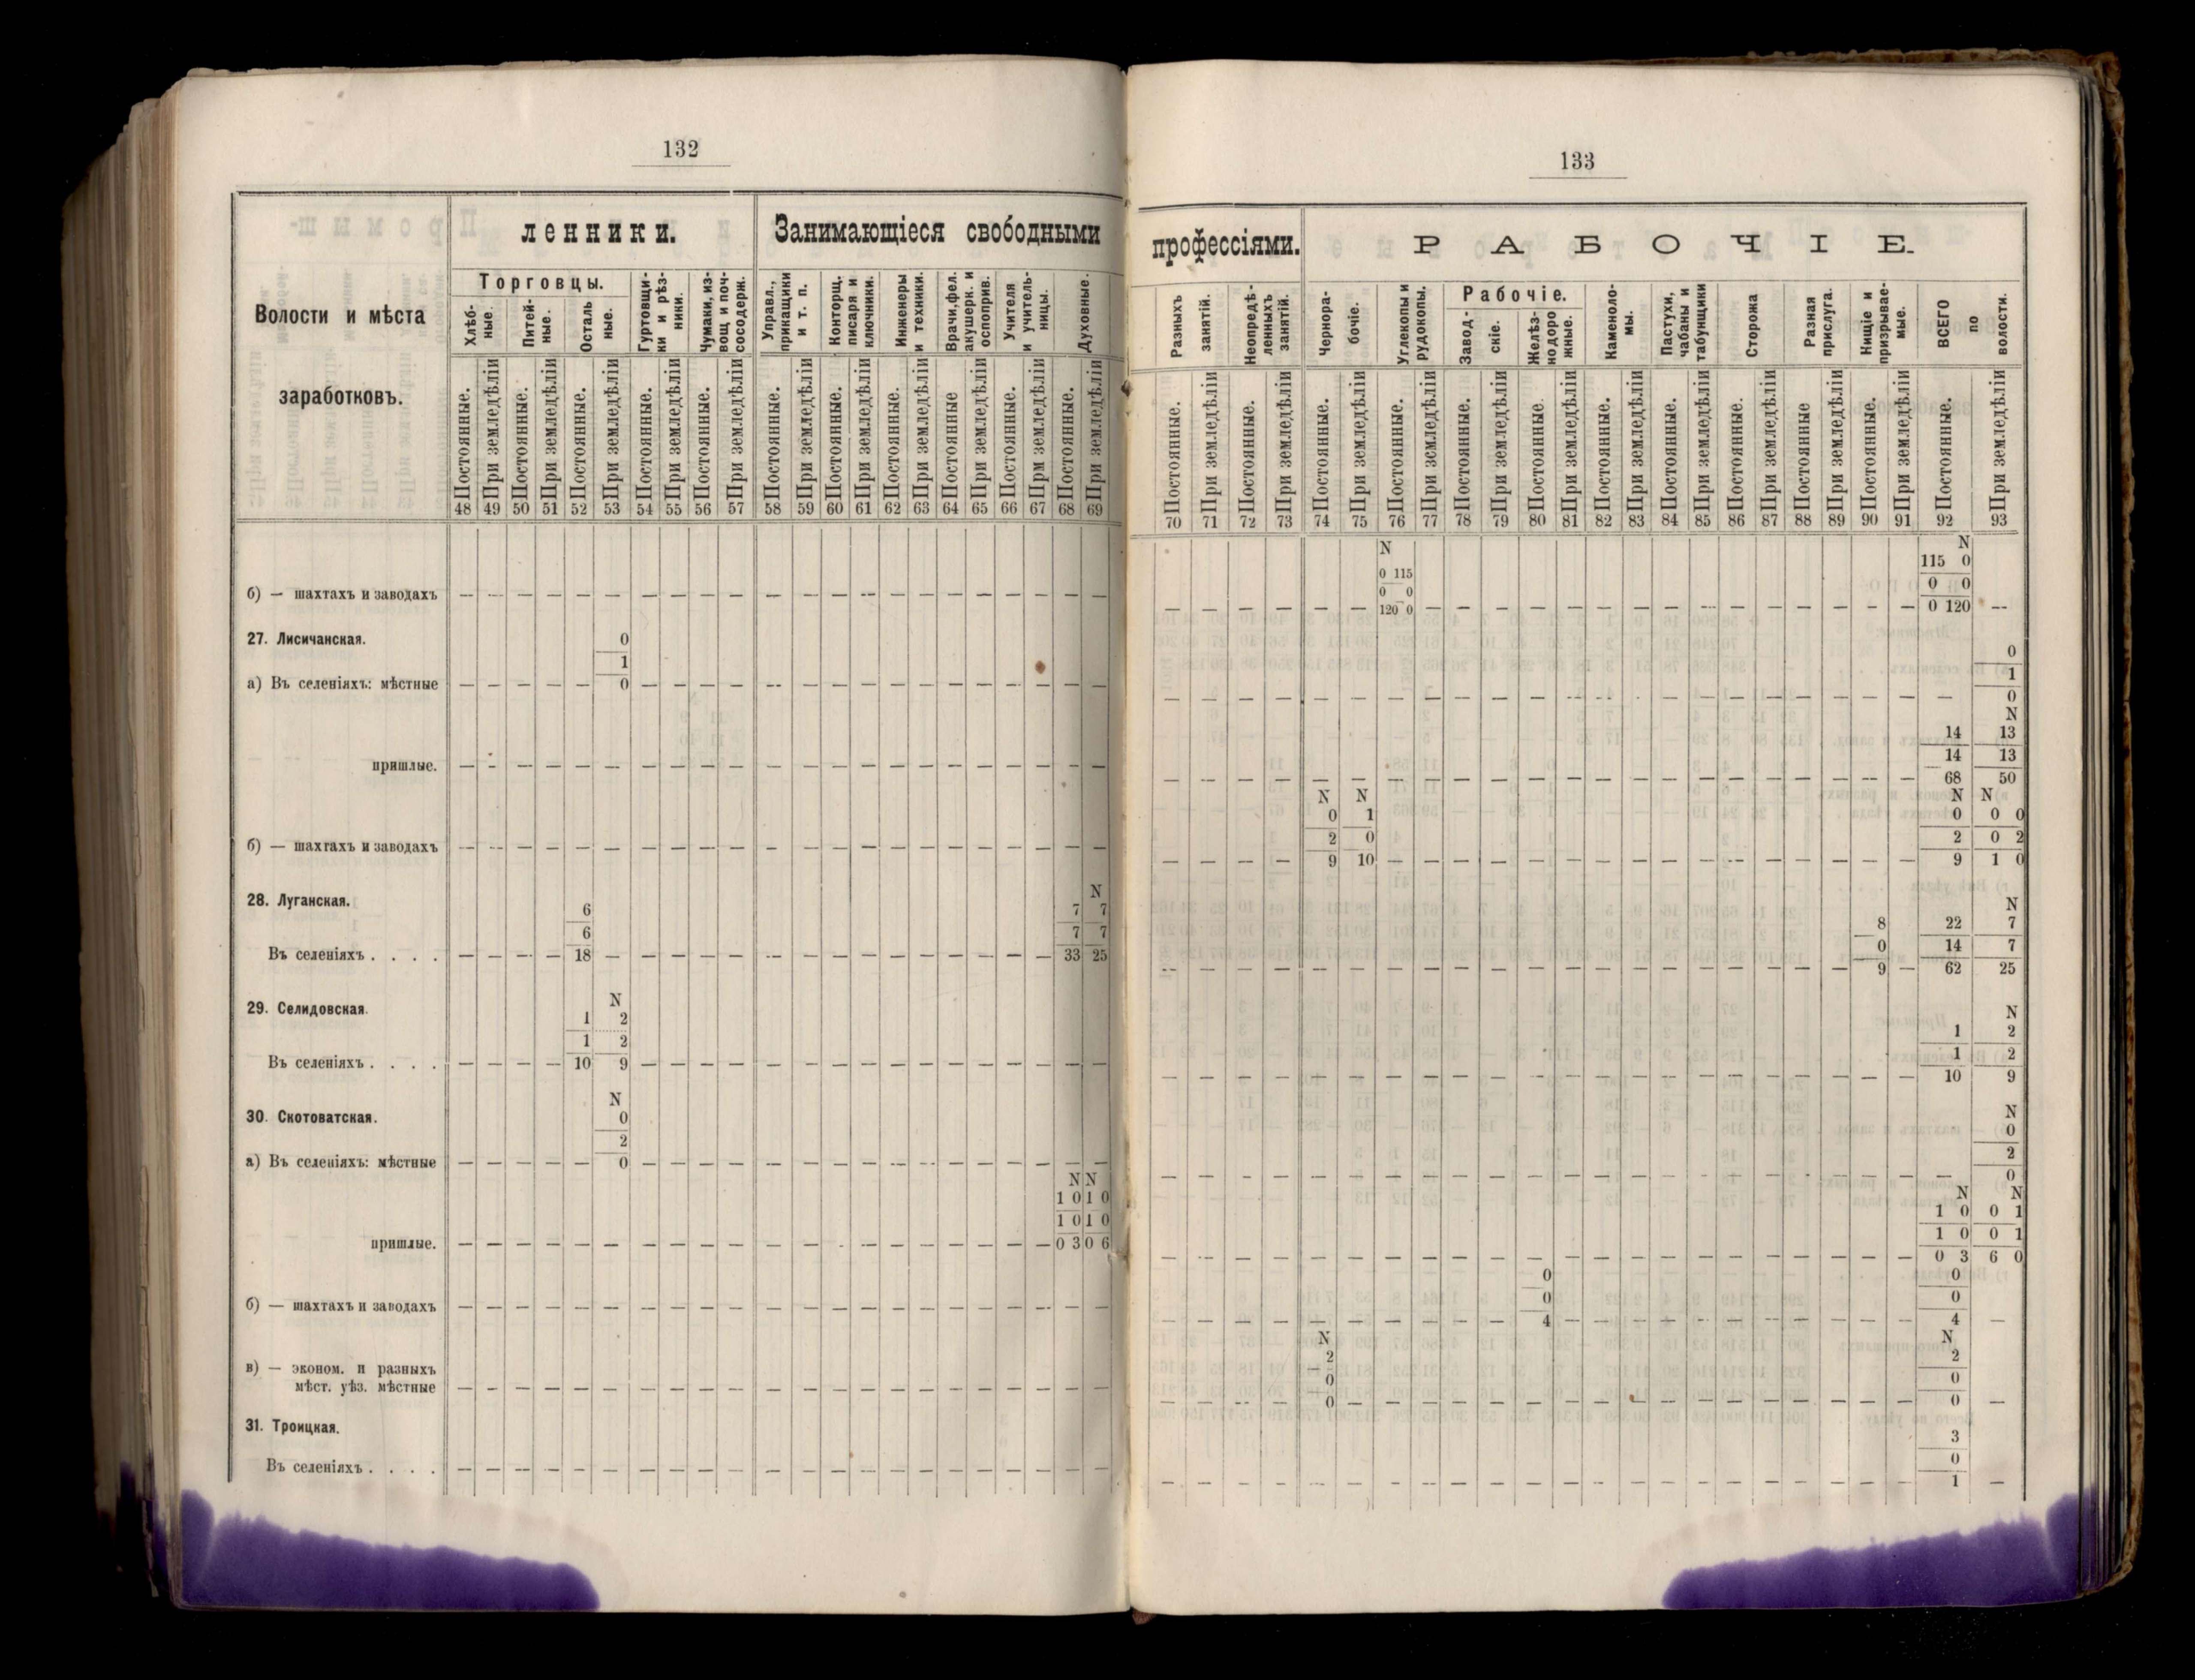 132
ленники.
Занимающіеся свободными
Волости и мѣста
заработковъ.
Торговцы.
Хлѣб-
ные.
Питей-
ные.
Осталь
ные.
Гуртовщи-
ки и рѣз-
ники.
Чумаки, из-
вощ и поч-
сосодерж.
Управл.,
прикащики
и т. п.
Конторщ.
писаря и
ключники.
Инженеры
и техники.
Врачи, фел.
акушерк. и
оспоприв.
Учителя
и учитель-
ницы.
Духовные.
Постоянные. При земледѣліи Постоянные. При земледѣліи Постоянные. При земледѣліи Постоянные. При земледѣліи Постоянные. При земледѣліи Постоянные. При земледѣліи Постоянные. При земледѣліи Постоянные При земледѣліи Постоянные При земледѣліи Постоянные. При земледѣліи Постоянные. При земледѣліи
48 49 50 51 52 53 54 55 56 57 58 59 60 61 62 63 64 65 66 67 68 69
б) — шахтахъ и заводахъ — — — — — — — — — — — — — — — — — — — — — —
27. Лисичанская. 0
1
а) Въ селеніяхъ: мѣстные — — — — — 0 — — — — — — — — — — — — — — — —
пришлые. — — — — — — — — — — — — — — — — — — — — — —
б) — шахгахъ и заводахъ — — — — — — — — — — — — — — — — — — — — — —
N
28. Луганская. 6 7 7
6 7 7
Въ селеніяхъ . . . . — — — — 18 — — — — — — — — — — — — — — — 33 25
N
29. Селидовская. 1 2
1 2
Въ селеніяхъ . . . . — — — — 10 9 — — — — — — — — — — — — — — — —
N
30. Скотоватская. 0
2
а) Въ селеніяхъ: мѣстные — — — — — 0 — — — — — — — — — — — — — — — —
N N
1 0 1 0
1 0 1 0
пришлые. — — — — — — — — — — — — — — — — — — — — 0 3 0 6
б) — шахтахъ и заводахъ — — — — — — — — — — — — — — — — — — — — — —
в) — эконом. и разныхъ
мѣст. уѣз. мѣстные — — — — — — — — — — — — — — — — — — — — — —
31. Троицкая.
Въ селеніяхъ . . . . — — — — — — — — — — — — — — — — — — — — — —
133
профессіями.
РАБОЧІЕ.
Разныхъ
занятій.
Неопредѣ-
ленныхъ
занятій.
Чернора-
бочіе.
Углекопы и
рудокопы.
Рабочіе.
Завод-
скіе.
Желѣз-
нодоро
жные.
Каменоло-
мы.
Пастухи,
чабаны и
табунщики
Сторожа
Разная
прислуга.
Нищіе и
призрывае-
мые.
ВСЕГО
по
волости.
Постоянные. При земледѣліи Постоянные. При земледѣліи Постоянные. При земледѣліи Постоянные. При земледѣліи Постоянные. При земледѣліи Постоянные При земледѣліи Постоянные. При земледѣліи Постоянные. При земледѣліи Постоянные. При земледѣліи Постоянные При земледѣліи Постоянные. При земледѣліи Постоянные. При земледѣліи
70 71 72 73 74 75 76 77 78 79 80 81 82 83 84 85 86 87 88 89 90 91 92 93
N N
0 115 115 0
0 0 0 0
— — — — — — 120 0 — — — — — — — — — — — — — — — 0 120 —
0
1
— — — — — — — — — — — — — — — — — — — — — — — 0
N
14 13
14 13
— — — — — — — — — — — — — — — — — — — — — — 68 50
N N N N
0 1 0 0 0
2 0 2 0 2
— — — — 9 10 — — — — — — — — — — — — — — — — 9 1 0
N
8 22 7
0 14 7
— — — — — — — — — — — — — — — — — — — — 9 — 62 25
N
1 2
1 2
— — — — — — — — — — — — — — — — — — — — — — 10 9
N
0
2
— — — — — — — — — — — — — — — — — — — — — — — 0
N N
1 0 0 1
1 0 0 1
— — — — — — — — — — — — — — — — — — — — — — 0 3 6 0
0 0
0 0
— — — — — — — — — — 4 — — — — — — — — — — — 4 —
N N
2 2
0 0
— — — — 0 — — — — — — — — — — — — — — — — — 0 —
3
0
— — — — — — — — — — — — — — — — — — — — — — 1 —